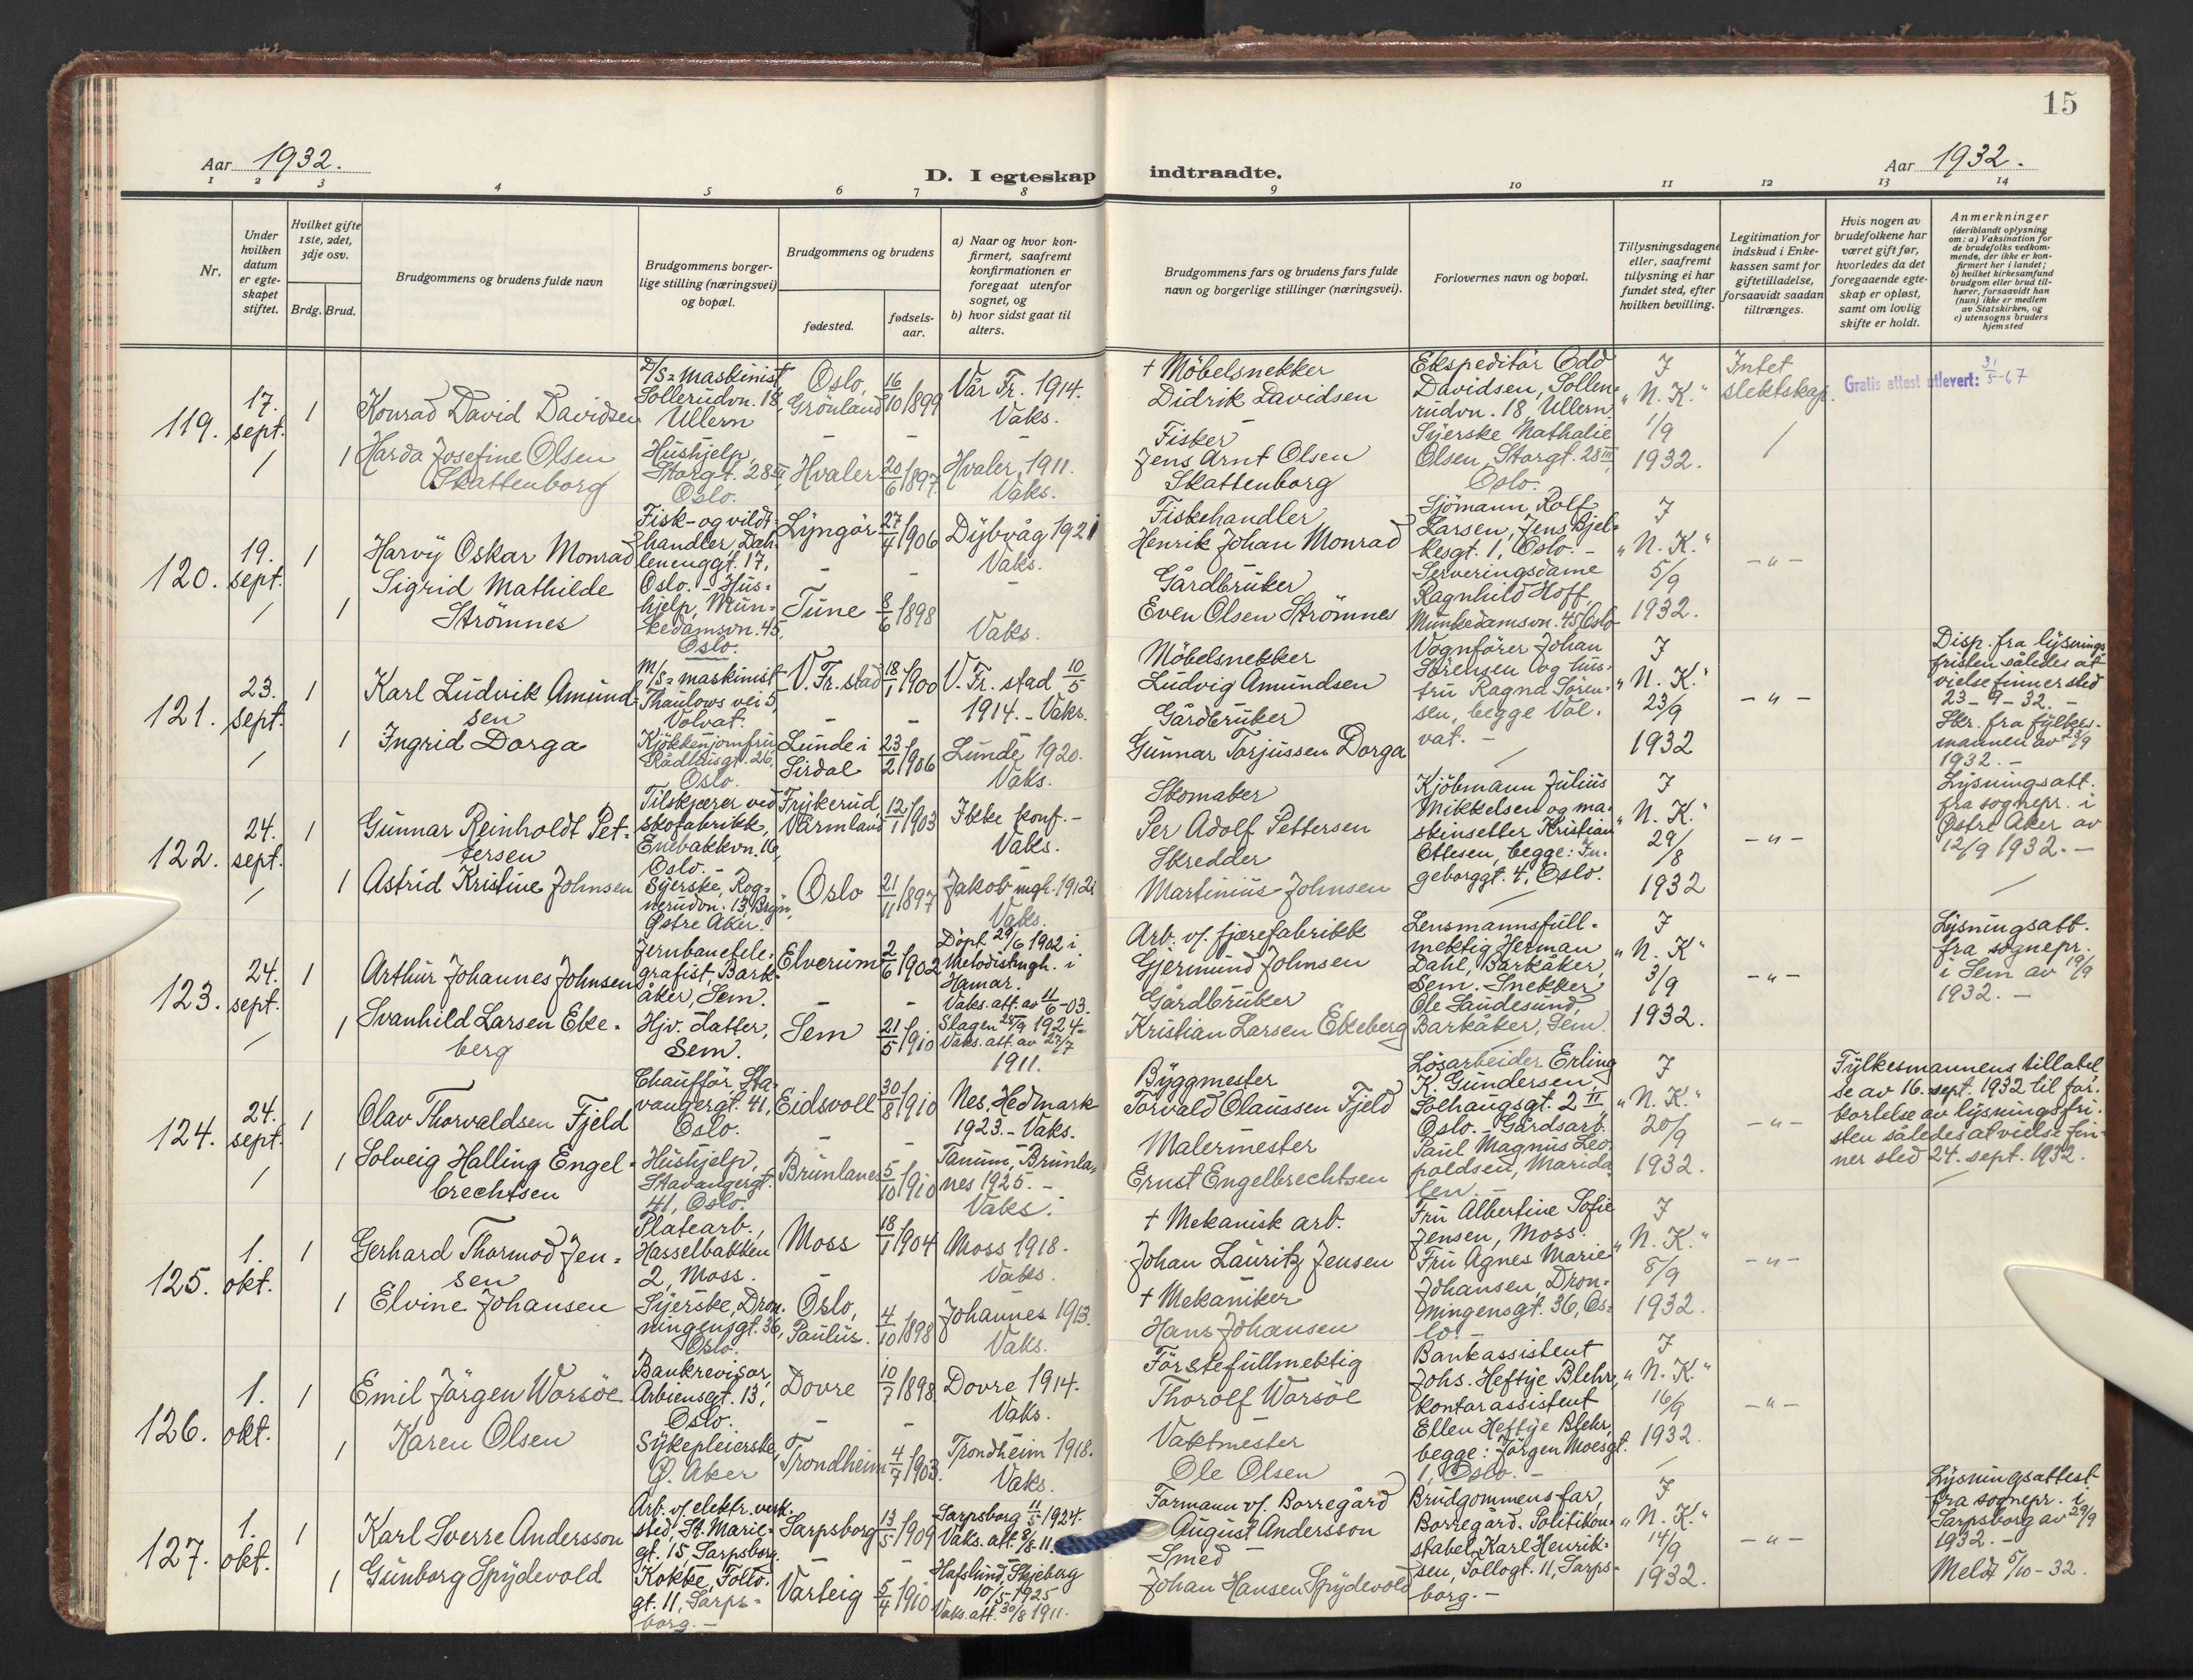 15
Aar 1932.
D. I egteskap indtraadte.
Aar 1932.
1 2 3 4 5 6 7 8 9 10 11 12 13 14
Nr.
Under hvilken datum er egteskapet stiftet.
Hvilket gifte 1ste, 2det, 3dje osv.
Brdg. Brud.
Brudgommens og brudens fulde navn
Brudgommens borgerlige stilling (næringsvei) og bopæl.
Brudgommens og brudens
fødested.
fødselsaar.
a) Naar og hvor konfirmert, saafremt konfirmationen er foregaat utenfor sognet, og
b) hvor sidst gaat til alters.
Brudgommens fars og brudens fars fulde navn og borgerlige stillinger (næringsvei).
Forlovernes navn og bopæl.
Tillysningsdagene eller, saafremt tillysning ei har fundet sted, efter hvilken bevilling.
Legitimation for indskud i Enkekassen samt for giftetilladelse, forsaavidt saadan tiltrænges.
Hvis nogen av brudefolkene har været gift før, hvorledes da det foregaaende egteskap er opløst, samt om lovlig skifte er holdt.
Anmerkninger
(deriblandt oplysning om: a) Vaksination for de brudefolks vedkommende, der ikke er konfirmert her i landet; b) hvilket kirkesamfund brudgom eller brud tilhører, forsaavidt han (hun) ikke er medlem av Statskirken, og c) utensogns bruders hjemsted
119. 17. sept. 1
Konrad David Davidsen
D/S= maskinist, Sollerudvn. 18, Ullern
Oslo, Grönland 16/10 1899
Vår Fr. 1914. Vaks.
† Möbelsnekker Didrik Davidsen
Ekspeditör Odd Davidsen, Sollerudvn. 18, Ullern
I "N. K." 1/9 1932.
Intet slektskap.
Gratis attest utlevert: 31/5-67
1 Harda Josefine Olsen Skattenborg
Hushjelp, Storgt. 28 III, Oslo.
Hvaler 20/6 1897.
Hvaler, 1911. Vaks.
Fisker Jens Arnt Olsen Skattenborg
Syerske Nathalie Olsen, Storgt. 28 III, Oslo.
120. 19. sept. 1
Harvy Oskar Monrad
Fisk- og vildthandler, Dahlenenggt. 17, Oslo.
Lyngör 27/4 1906
Dybvåg 1921 Vaks.
Fiskehandler Henrik Johan Monrad
Sjömann Rolf Larsen, Jens Bjelkesgt. 1, Oslo. -
I "N. K." 5/9 1932.
- " -
1 Sigrid Mathilde Strömnes
Hushjelp, Munkedamsvn. 45, Oslo.
Tune 8/6 1898
Vaks.
Gårdbruker Even Olsen Strömnes
Serveringsdame Ragnhild Hoff, Munkedamsvn. 45, Oslo
121. 23. sept. 1
Karl Ludvik Amundsen
M/S= maskinist Thaulows vei 5, Volvat.
V. Fr. stad 18/1 1900
V. Fr. stad 10/5 1914. - Vaks.
Möbelsnekker Ludvig Amundsen
Vognförer Johan Sörensen og husfru Ragna Sörensen, begge Volvat. -
I "N. K." 23/9 1932
- " -
Disp. fra lysningsfristen således at vielse finner sted 23-9-32. - Skr. fra fylkesmannen av 23/9 1932. -
1 Ingrid Dorga
Kjökkenjomfru Rådhusgt. 26, Oslo.
Lunde i Sirdal 23/2 1906
Lunde 1920. Vaks.
Gårdbruker Gunnar Torjussen Dorga
122. 24. sept. 1
Gunnar Reinholdt Pettersen
Tilskjærer ved skofabrikk, Enebakkvn. 16, Oslo. -
Frykerud, Värmland 12/1 1903
Ikke konf. - Vaks.
Skomaker Per Adolf Pettersen
Kjöbmann Julius Mikkelsen og maskinsetter Kristian Ottesen, begge: Ingeborggt. 4, Oslo.
I "N. K." 29/8 1932
- " -
Lysningsatt. fra sognepr. i Østre Aker av 12/9 1932. -
1 Astrid Kristine Johnsen
Syerske, Rognerudvn. 13, Bryn, Østre Aker.
Oslo 21/11 1897
Jakob mgh. 1912 Vaks.
Skredder Martinius Johnsen
123. 24. sept. 1
Arthur Johannes Johnsen
Jernbanetelegrafist, Barkåker, Sem.
Elverum 2/6 1902
Döpt 29/6 1902 i Metodistmgh. i Hamar. Vaks. att. av 11/6-03.
Arb. v/ fjærefabrikk Gjermund Johnsen
Lensmannsfullmektig Herman Dahl, Barkåker, Sem. Snekker Ole Saudesund, Barkåker, Sem.
I "N. K" 3/9 1932.
- " -
Lysningsatt. fra sognepr. i Sem av 19/9 1932. -
1 Svanhild Larsen Ekeberg
Hjv. datter, Sem.
Sem 21/5 1910
Slagen 28/9 1924. Vaks. att. av 27/7 1911.
Gårdbruker Kristian Larsen Ekeberg
124. 24. sept. 1
Olav Thorvaldsen Fjeld
Chaufför, Stavangergt. 41, Oslo.
Eidsvoll 30/8 1910
Nes, Hedmark 1923. - Vaks.
Byggmester Torvald Olaussen Fjeld
Lösarbeider Erling K. Gundersen, Solhaugsgt. 2 II, Oslo. - Gårdsarb. Paul Magnus Leopoldsen, Maridalen. -
I "N. K." 20/9 1932.
- " -
Fylkesmannens tillatelse av 16. sept. 1932 til forkortelse av lysningsfristen således at vielse finner sted 24. sept. 1932.
1 Solveig Halling Engelbrechtsen
Hushjelp, Stavangergt. 41, Oslo.
Brunlanes 5/10 1910
Tanum, Brunlanes 1925. - Vaks.
Malermester Ernst Engelbrechtsen
125. 1. okt. 1
Gerhard Thormod Jensen
Platearb., Hasselbakken 2, Moss.
Moss 18/1 1904
Moss 1918. Vaks.
† Mekanisk arb. Johan Lauritz Jensen
Fru Albertine Sofie Jensen, Moss. Fru Agnes Marie Johansen, Dronningensgt. 36, Oslo. -
I "N. K." 8/9 1932.
- " -
1 Elvine Johansen
Syerske, Dronningensgt. 36, Oslo.
Oslo, Paulus. 4/10 1898
Johannes 1913. Vaks.
† Mekaniker Hans Johansen
126. 1. okt. 1
Emil Jörgen Worsöe
Bankrevisor, Arbiensgt. 13, Oslo.
Dovre 10/7 1898
Dovre 1914. Vaks.
Förstefullmektig Thorolf Worsöe
Bankassistent Johs. Heftye Blehr, kontorassistent Ellen Heftye Blehr, begge: Jörgen Moesgt. 1, Oslo. -
I "N. K." 16/9 1932.
- " -
1 Karen Olsen
Sykepleierske, Ø. Aker
Trondheim 4/7 1903.
Trondheim 1918. Vaks.
Vaktmester Ole Olsen
127. 1. okt. 1
Karl Sverre Andersson
Arb. v/ elektr. verksted, St. Mariegt. 15, Sarpsborg.
Sarpsborg 13/5 1909
Sarpsborg 11/5 1924. Vaks. att. 8/8-11
Formann v/ Borregård August Andersson
Brudgommens far, Borregård. Politikonstabel Karl Henriksen, Tollogt. 11, Sarpsborg. -
I "N. K." 14/9 1932.
- " -
Lysningsattest fra sognepr. i Sarpsborg av 29/9 1932. - Meldt 5/10-32.
1 Gunborg Spydevold
Kokke, Tollo. gt. 11, Sarpsborg. -
Varteig 5/4 1910
Hafslund, Skjeberg 10/5-1925 Vaks. att. 30/8 1911.
Smed Johan Hansen Spydevold